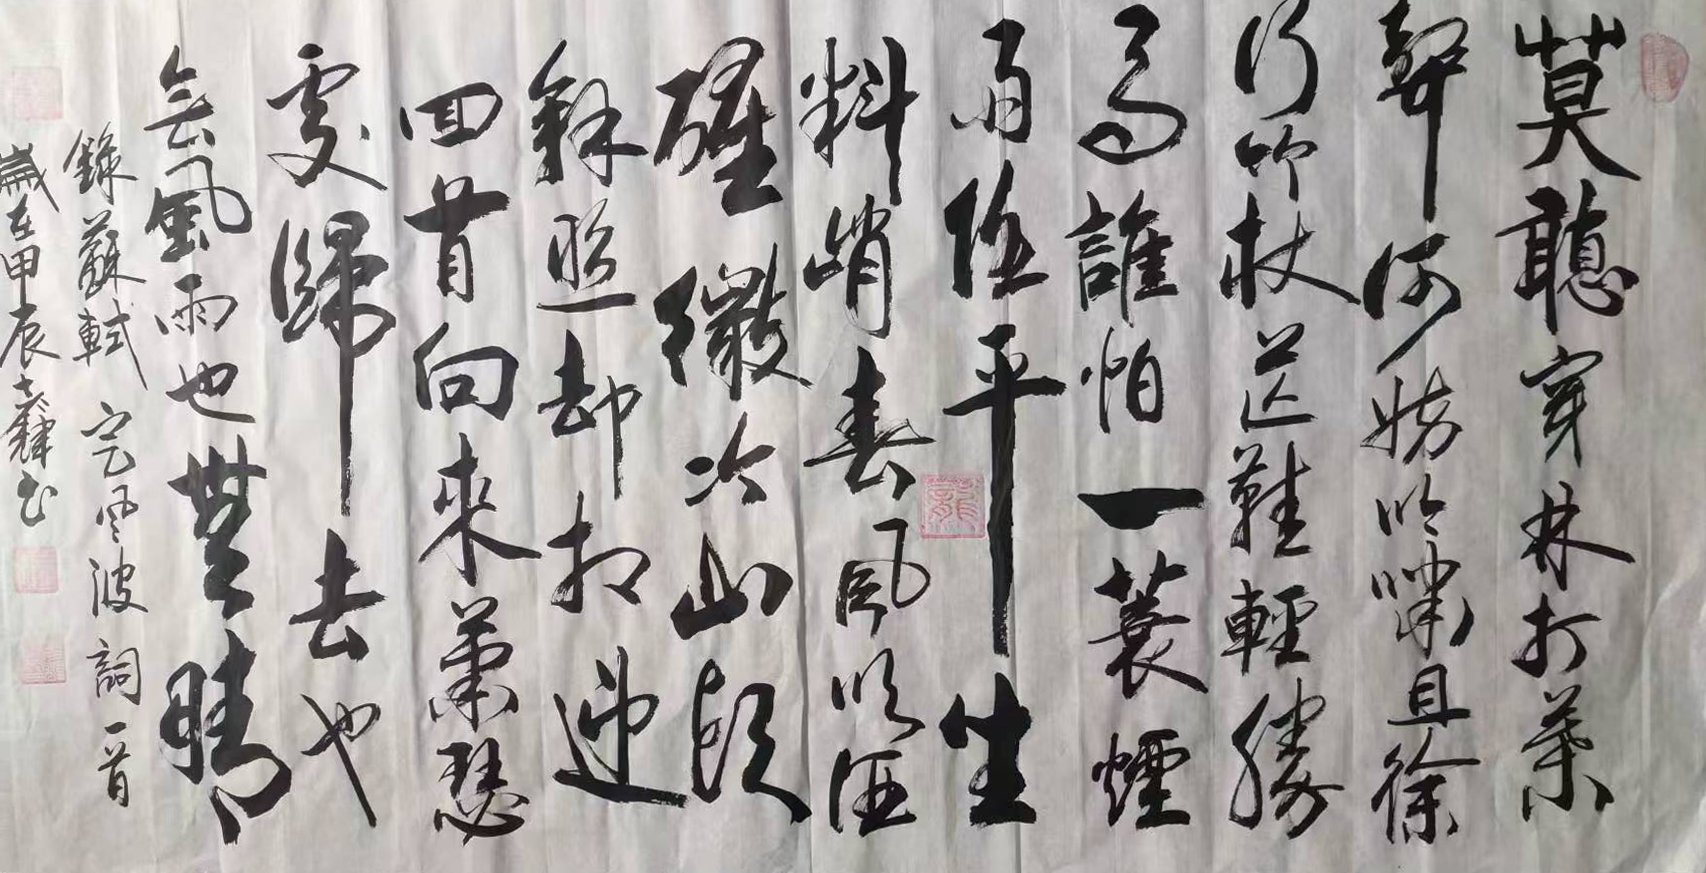 莫聽穿林打葉
聲何妨吟嘯且徐
行竹杖芒鞋輕勝
馬誰怕一蓑煙
雨任平生
料峭春風吹酒
醒微冷山頭
斜照却相迎
回首向來蕭瑟
處歸去也
無風雨也無晴
錄蘇軾定風波詞一首
歲在甲辰 書
龍